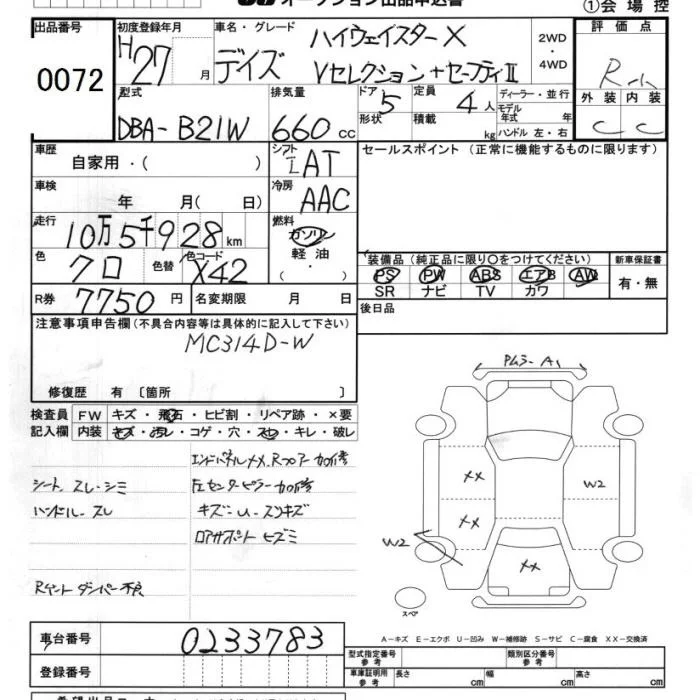 オークション出品申込書
①会場控
出品番号
0072
初度登録年月
H27月
車名・グレード
デイズ
ハイウェイスターX
Vセレクション+セーフティII
2WD・4WD
評価点
R
外装 内装
C C
型式
DBA-B21W
排気量
660cc
ドア 5
形状
定員 4人
積載 kg
ディーラー・並行
モデル年式 年
ハンドル 左・右
車歴
自家用・( )
シフト
IAT
セールスポイント(正常に機能するものに限ります)
車検
年 月( 日)
冷房
AAC
走行
10万5千928km
燃料
ガソリン
軽油
( ・ )
色
クロ
色替
色コード
X42
装備品(純正品に限り○をつけてください)
PS PW ABS エアB AW
SR ナビ TV カワ
新車保証書
有・無
R券
7750円
名変期限 月 日
後日品
注意事項申告欄(不具合内容等は具体的に記入して下さい)
MC314D-W
修復歴 有〔箇所 〕
検査員記入欄
FW キズ・飛石・ヒビ割・リペア跡・×要
内装 キズ・汚レ・コゲ・穴・スレ・キレ・破レ
エンドパネルXX、Rフロアー加修
シート スレ・シミ
左センターピラー加修
ハンドル・スレ
キズ・U・スリキズ
ロアサポート ヒズミ
Rゲート ダンパー不良
PムラーA1
XX
W2
XX
W2
XX
スペア
A-キズ E-エクボ U-凹み W-補修跡 S-サビ C-腐食 XX-交換済
車台番号
0233783
登録番号
型式指定番号 参考
類別区分番号 参考
車庫証明用 参考
長さ cm
幅 cm
高さ cm